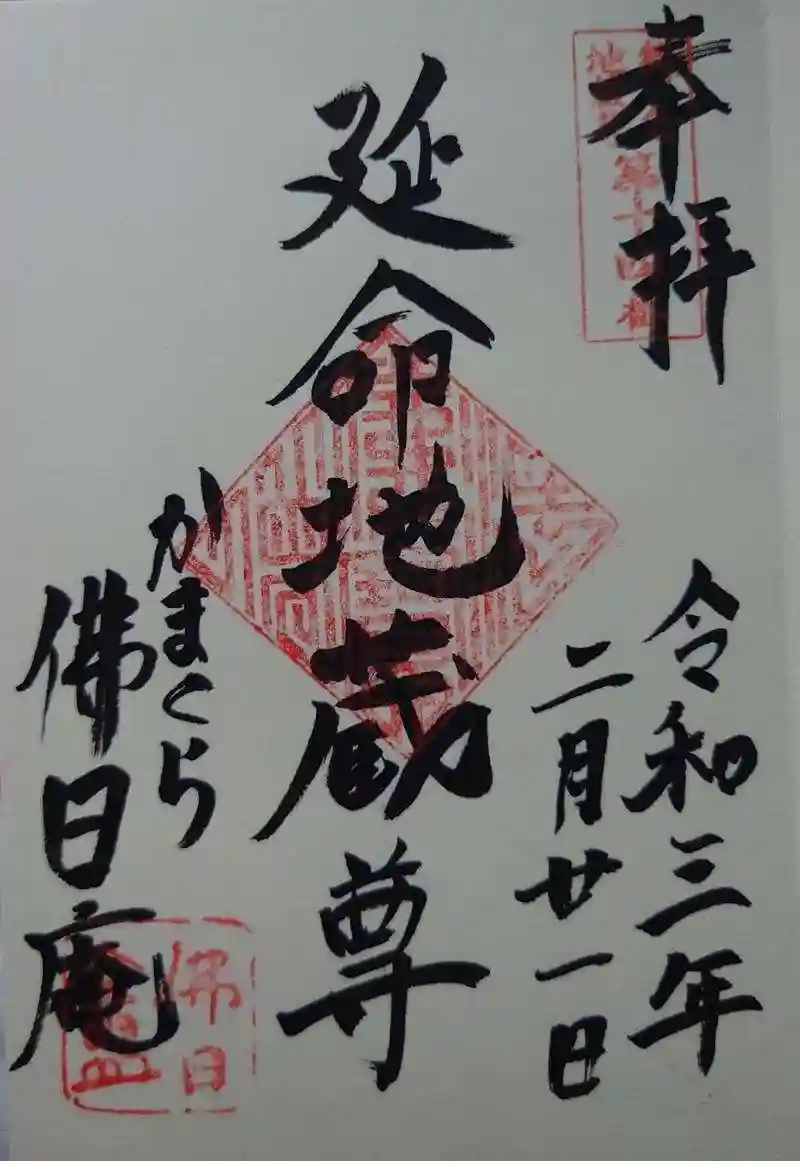 奉拝
第十四番
令和三年
二月廿一日
延命地蔵尊
かまくら
佛日庵
佛日